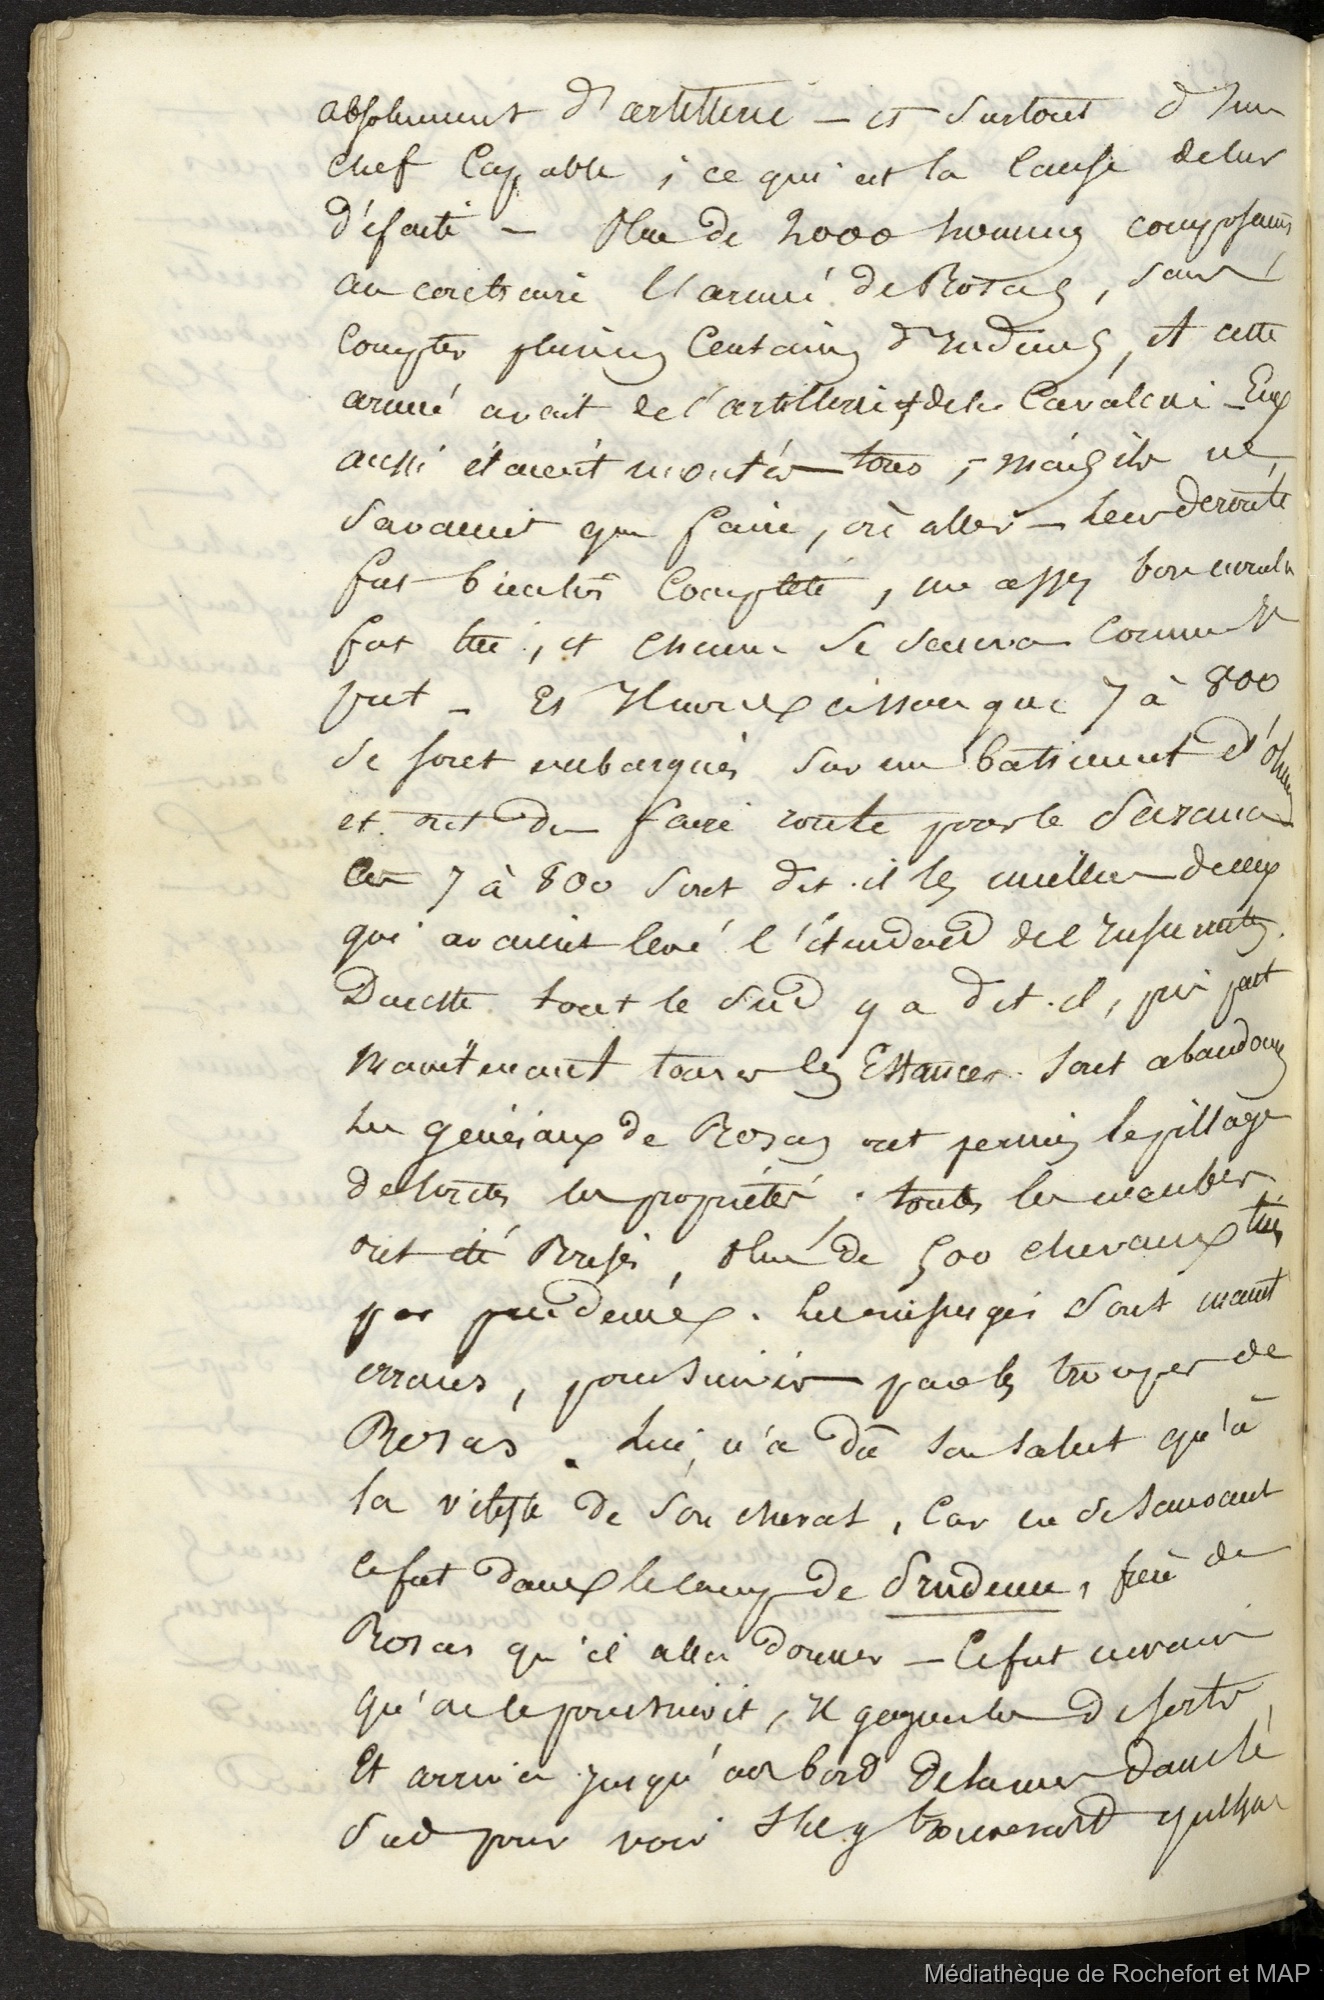 absolument d'artillerie — et surtout d'un
chef capable ; ce qui est la cause de leur
défaite — Plus de 2000 hommes composaient
au contraire l'armée de Rosas, sans
compter plusieurs centaines d'Indiens, et cette
armée avait de l'artillerie & de la Cavalerie — Eux
aussi étaient montés tous ; mais ils ne
savaient que faire, où aller — Leur deroute
fut bientôt complète, un assez bon nombre
fut tué, et chacun se sauva comme il
put — Et Il 7 à 800
se sont embarqués sur un batiment
et ont du faire route pour le Parana
Ces 7 à 800 sont dit-il les meilleurs de ceux
qui avaient levé l'étendard de l'
Dans tout le Sud y a dit-il,
maintenant toutes les Estances sont abandonnées
Les généraux de Rosas ont permis le pillage
de toutes les propriétés. toutes les meubles
ont été brisés, Plus de 500 chevaux tués
par . Les insurgés sont maint
errans, poursuivis par les troupes de
Rosas. Lui, n'a dû son salut qu'à
la vitesse de son cheval, car en se sauvant
ce fut dans le camp de Prudence, frère de
Rosas qu'il alla donner — Ce fut en vain
qu'on le poursuivit, Il gagna les deserts,
Et arriva jusqu'aux bord de la mer dans le
Sud pour voir s'Il y trouverait quelque
Médiathèque de Rochefort et MAP